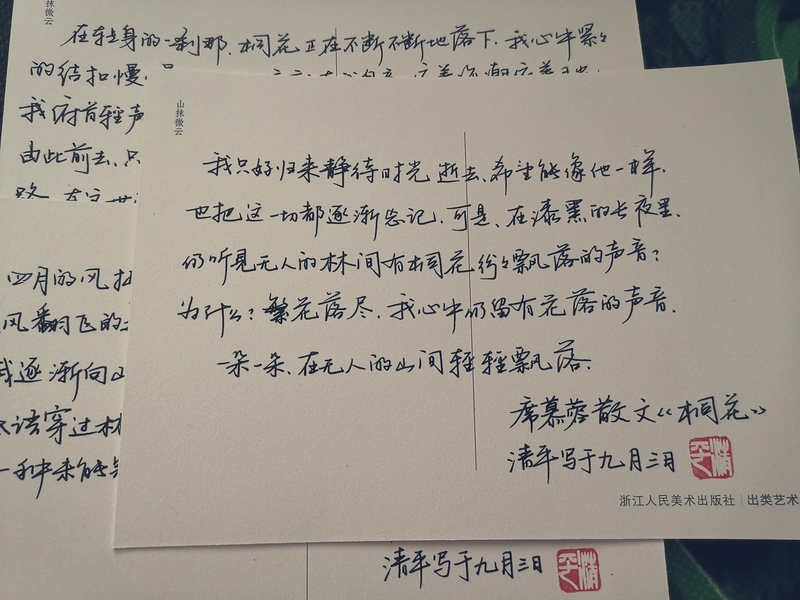 山抹微云
在转身的一刹那,桐花正在不断不断地落下。我心中紧紧
的结扣慢
我俯首轻声
由此前去、只
路
四月的风拉
风翻飞的
我逐渐向山
穿过林
一种中来
山抹微云
我只好归来静待时光逝去、希望能像他一样、
也把这一切都逐渐忘记。可是、在漆黑的长夜里、
仍听见无人的林间有桐花纷纷飘落的声音?
为什么?繁花落尽、我心中仍留有花落的声音。
一朵一朵、在无人的山间轻轻飘落。
席慕蓉散文《桐花》
清平写于九月三日
清平
浙江人民美术出版社|出类艺术
清平写于九月三日
清平